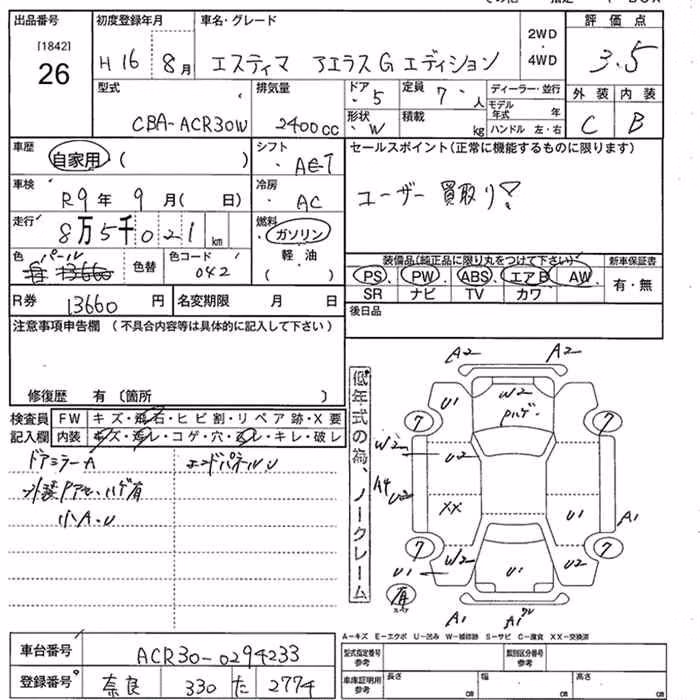 出品番号
[1842]
26
初度登録年月
H 16 8月
車名・グレード
エスティマ アエラス G エディション
2WD
・
4WD
評価点
3.5
外装 内装
C B
型式
CBA-ACR30W
排気量
2400cc
ドア 5
形状 W
定員 7 人
積載 kg
ディーラー・並行
モデル年式 年
ハンドル 左・右
車歴 自家用・( )
シフト
AT
セールスポイント(正常に機能するものに限ります)
ユーザー買取り!
車検 R9年 9月( 日)
冷房
AC
走行 8万5千021km
燃料
ガソリン
・
軽油
( )
色 パール
色替
色コード
042
装備品(純正品に限り丸をつけて下さい)
新車保証書
PS、PW、ABS、エアB、AW、
有・無
SR ナビ TV カワ
R券 13660円
名変期限 月 日
後日品
注意事項申告欄(不具合内容等は具体的に記入して下さい)
修復歴 有(箇所 )
検査員記入欄
FW キズ・飛石・ヒビ割・リペア跡・X要
内装 キズ・汚レ・コゲ・穴・スレ・キレ・破レ
ドアミラーA
エンドパネルU
ハゲ有
小A・U
低年式の為、ノークレーム
A2 A2
U1 W2
ハゲ
7 7
W2 U2
A4 U2
XX
U1 A1
7 7
W2
U1 U1 U2
有
A1 A1
A-キズ E-エクボ U-凹み W-補修跡 S-サビ C-腐食 XX-交換済
車台番号 ACR30-0294233
登録番号 奈良 330 た 2774
型式指定番号
参考
類別区分番号
参考
車庫証明用
参考
長さ cm
幅 cm
高さ cm